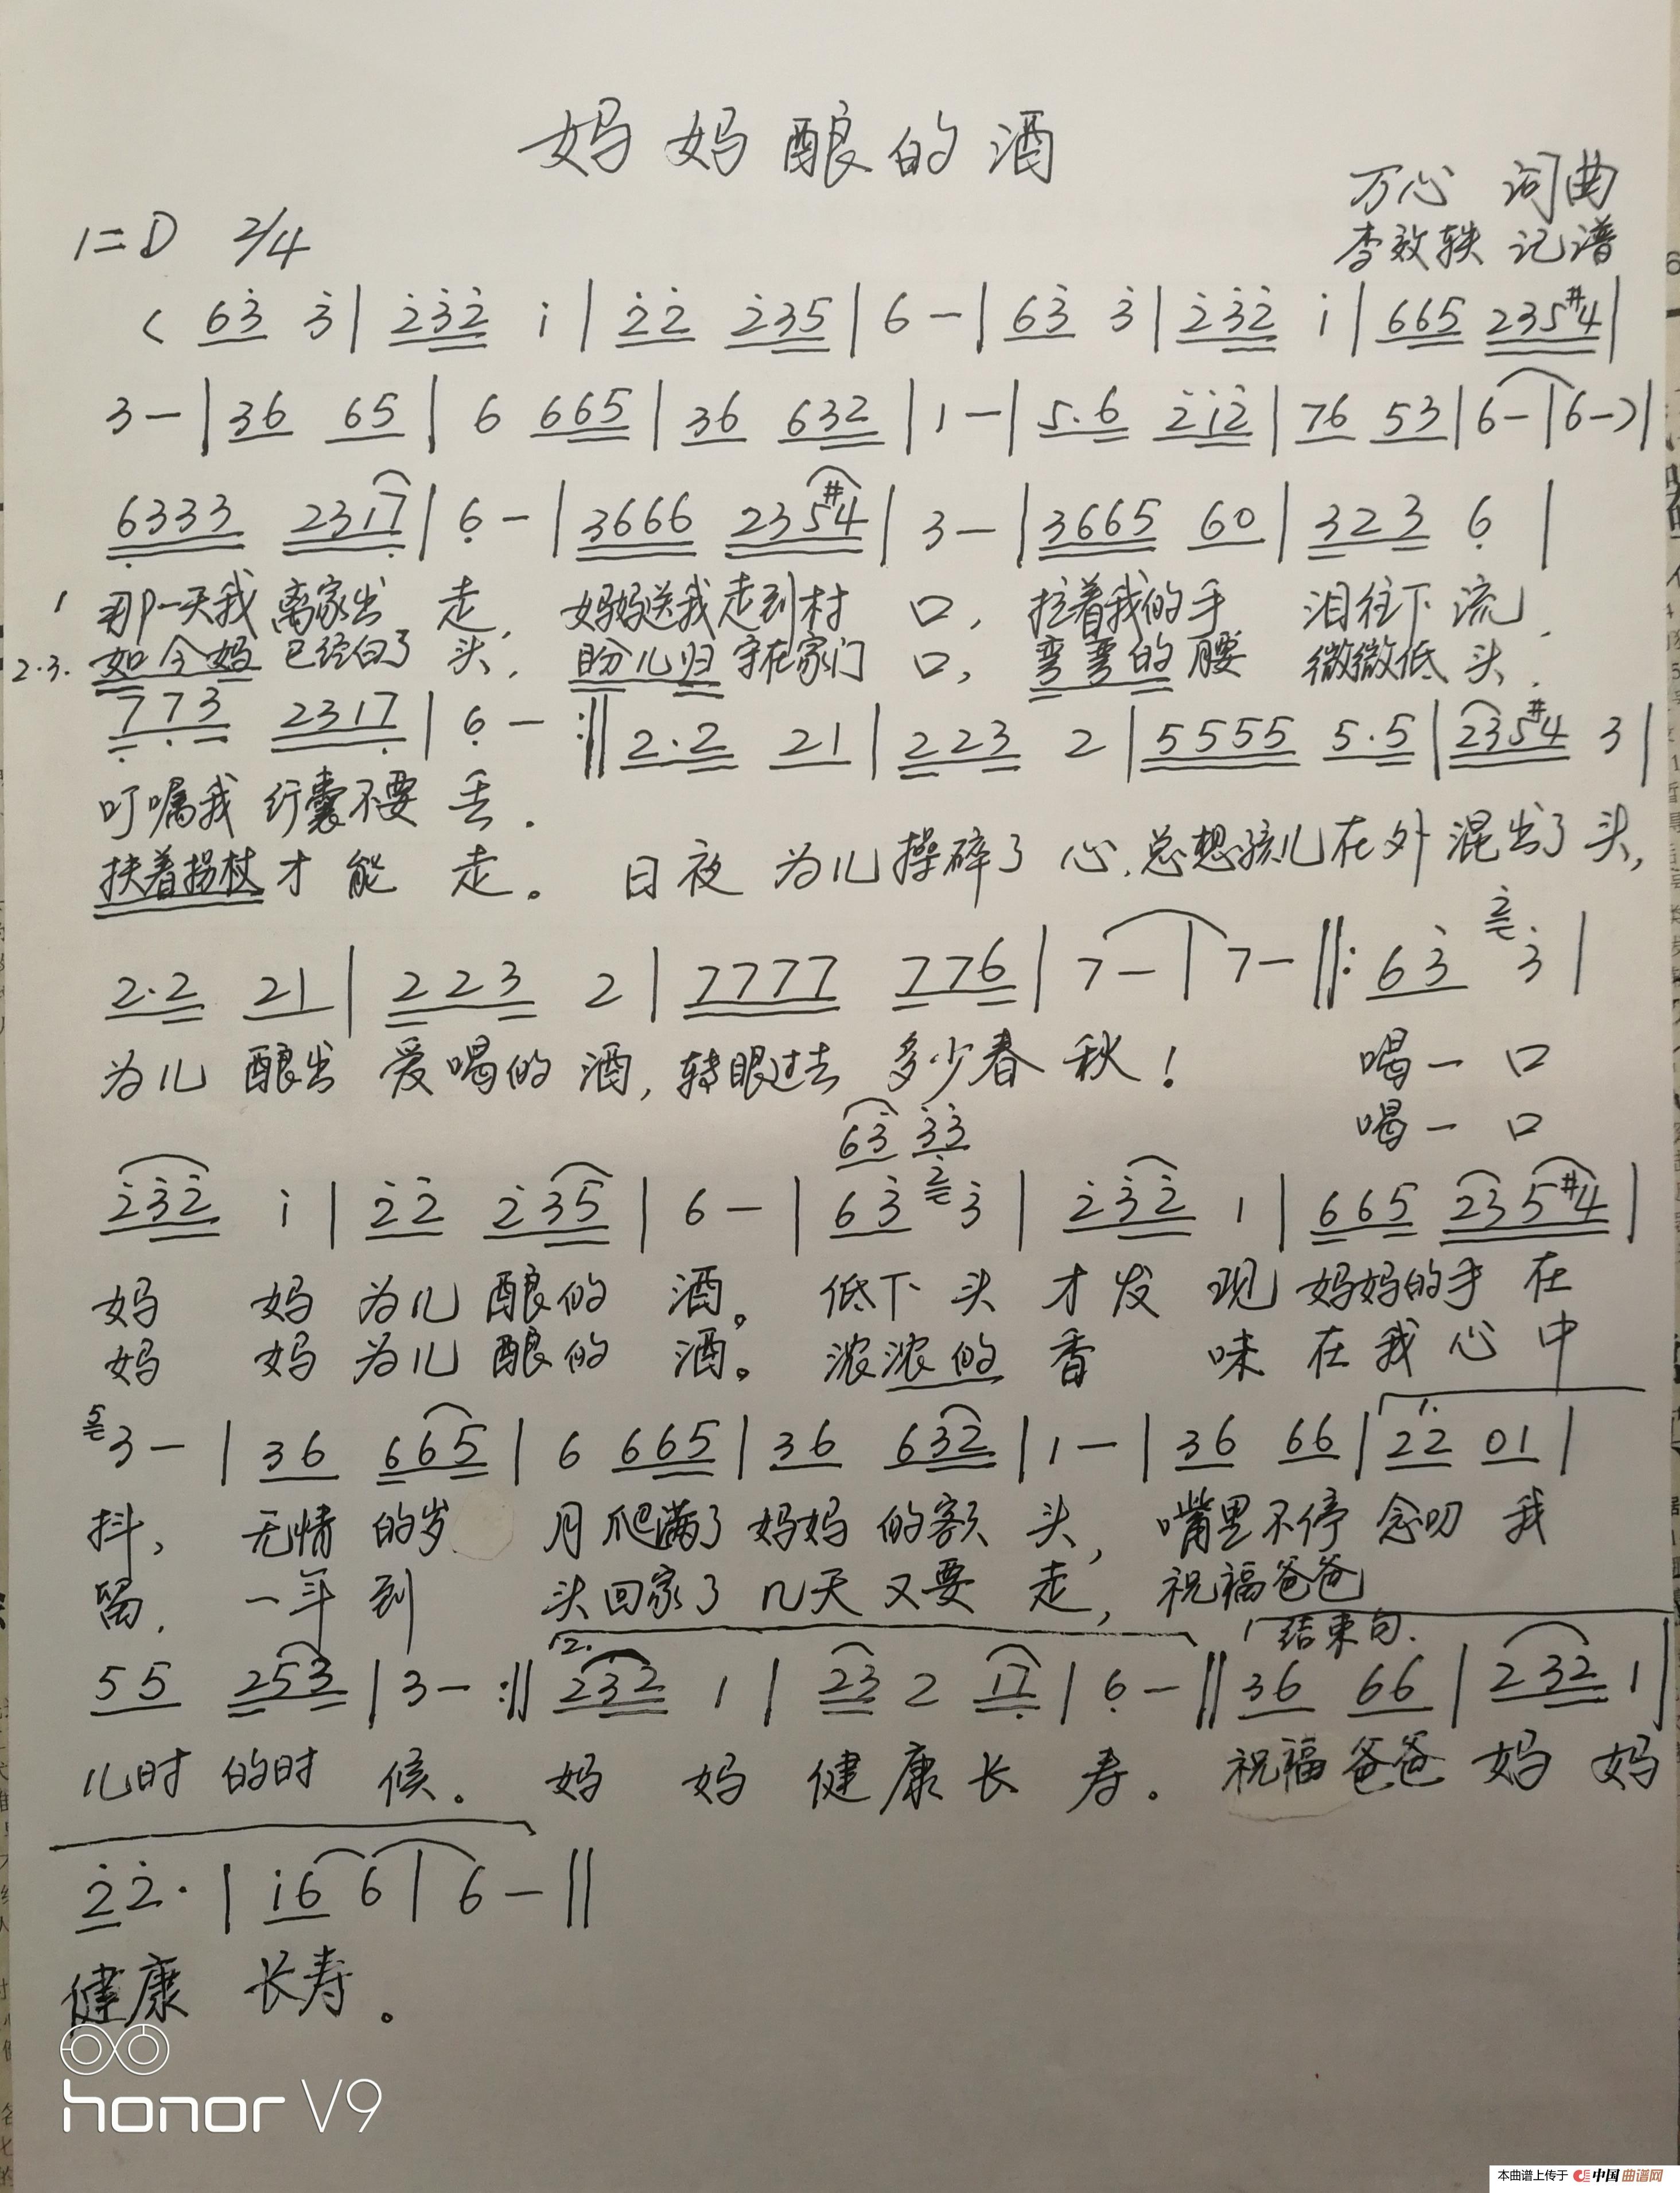 妈妈酿的酒
万心 词曲
1=D 2/4
李效轶 记谱
( 63̇ 3̇ | 2̇3̇2̇ i | 2̇2̇ 2̇35 | 6 - | 63̇ 3̇ | 2̇3̇2̇ i | 665 235#4 |
3 - | 36 65 | 6 665 | 36 632 | 1 - | 5.6 2̇i2̇ | 76 53 | 6 - | 6 - ) |
6333 2317 | 6 - | 3666 235#4 | 3 - | 3665 60 | 323 6 |
1 那一天我 离家出 走, 妈妈送我走到村 口, 拉着我的手 泪往下流.
2.3. 如今妈已经白了 头, 盼儿归守在家门 口, 弯弯的腰 微微低头.
773 2317 | 6 - :‖ 2.2 21 | 223 2 | 5555 5.5 | 235#4 3 |
叮嘱我 行囊不要 丢.
扶着拐杖才能 走。 日夜 为儿操碎了 心,总想孩儿在外混出了头,
2.2 21 | 223 2 | 7777 776 | 7 - | 7 - ‖: 63̇ 2̇3̇ |
为儿 酿出 爱喝的 酒, 转眼过去 多少春 秋! 喝一 口
喝一 口
63̇ 3̇3̇
2̇3̇2̇ i | 2̇2̇ 2̇35 | 6 - | 63̇ 2̇3̇ | 2̇3̇2̇ 1 | 665 235#4 |
妈 妈 为儿 酿的 酒。 低下 头 才发 现 妈妈的手 在
妈 妈 为儿 酿的 酒。 浓浓的 香 味 在我心中
5 3 - | 36 665 | 6 665 | 36 632 | 1 - | 36 66 | 1. 22 01 |
抖, 无情 的岁 月爬满了 妈妈 的额 头, 嘴里不停 念叨 我
留, 一年 到 头回家了 几天 又要 走, 祝福爸爸
55 253 | 3 - :‖ 2. 232 1 | 23 2 17 | 6 - ‖ 结束句. 36 66 | 232 1 |
儿时 的时 候. 妈 妈 健康长 寿. 祝福爸爸 妈 妈
2̇2̇. | i6 6 | 6 - ‖
健康 长寿.
honor V9
本曲谱上传于 中国曲谱网